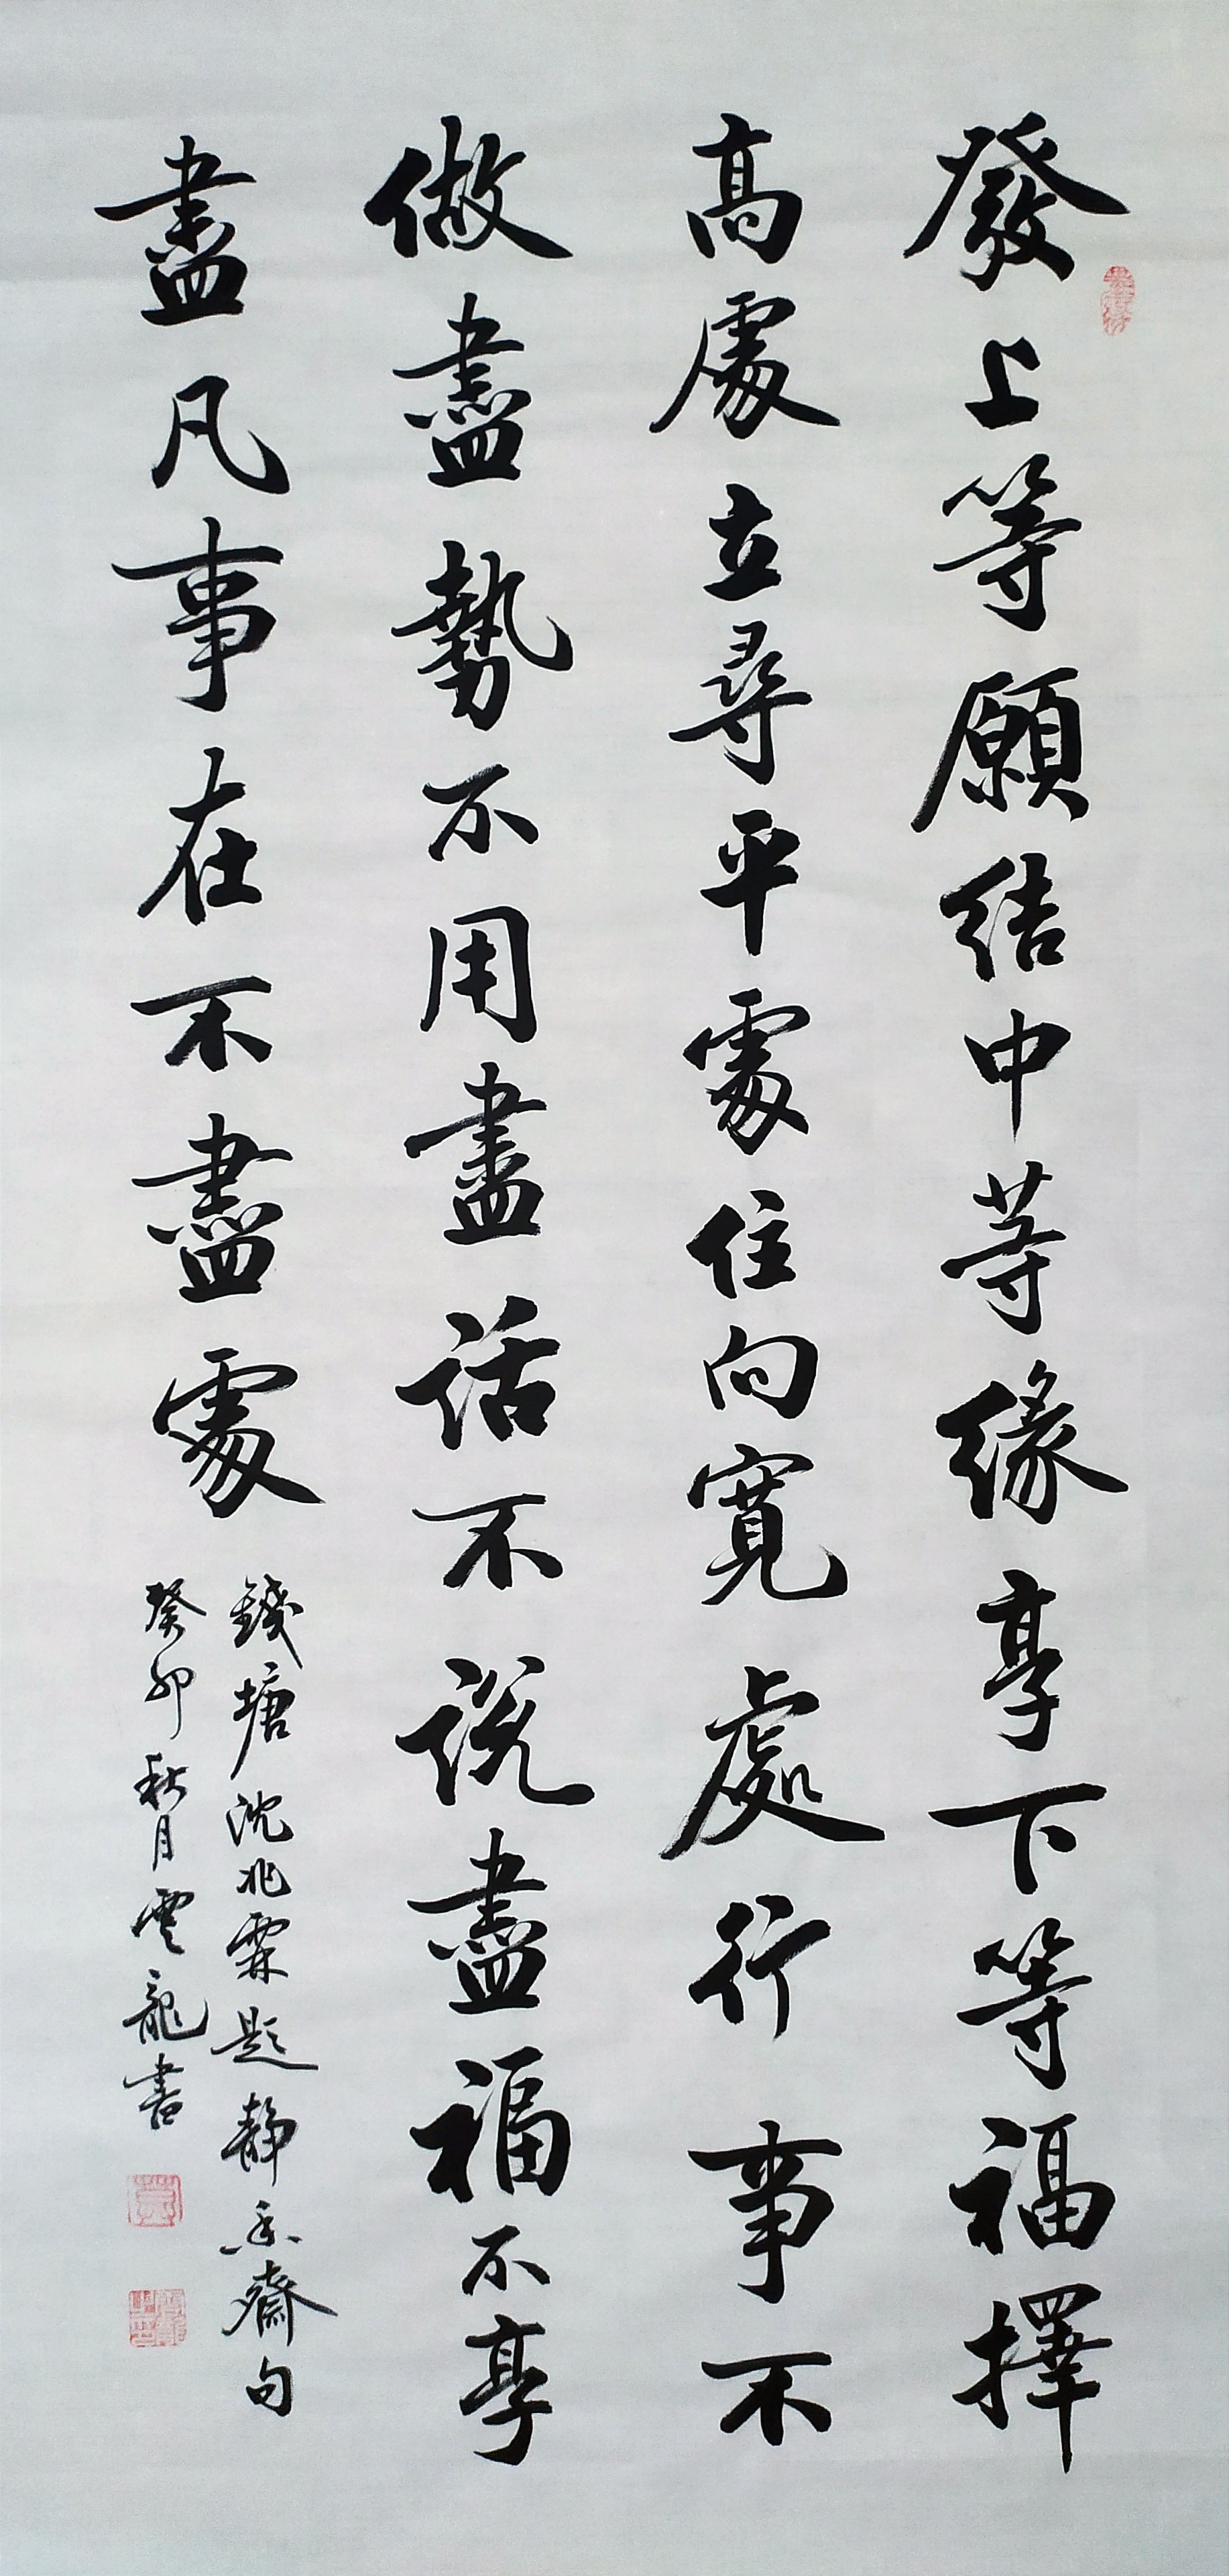 發上等願結中等緣享下等福擇
高處立尋平處住向寬處行事不
做盡勢不用盡話不説盡福不享
盡凡事在不盡處
錢塘沈兆霖題靜香齋句
癸卯秋月雲龍書